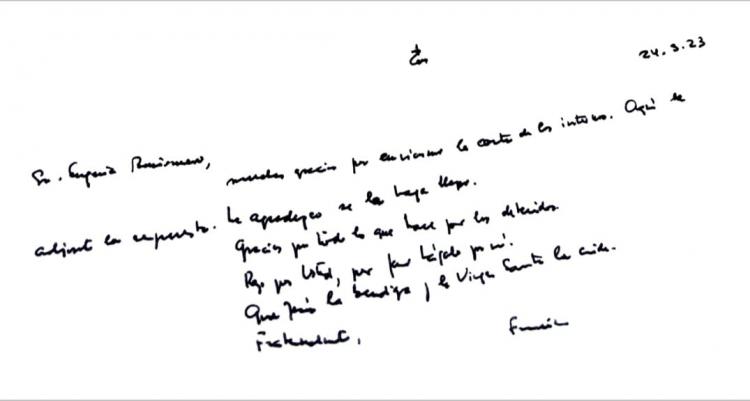 24.3.23
Sr. Eugenio
muchas gracias por enviarme la carta de los internos. Aquí le
adjunto la respuesta. Le agradezco se la haga llegar.
Gracias por todo lo que hace por los detenidos.
Rezo por Usted, por favor hágalo por mí.
Que Jesús la bendiga y la Virgen Santa la cuide.
Fraternalmente,